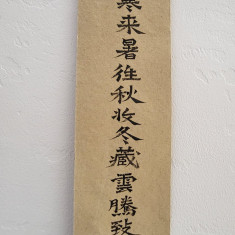 寒来暑往秋收冬藏雲騰致